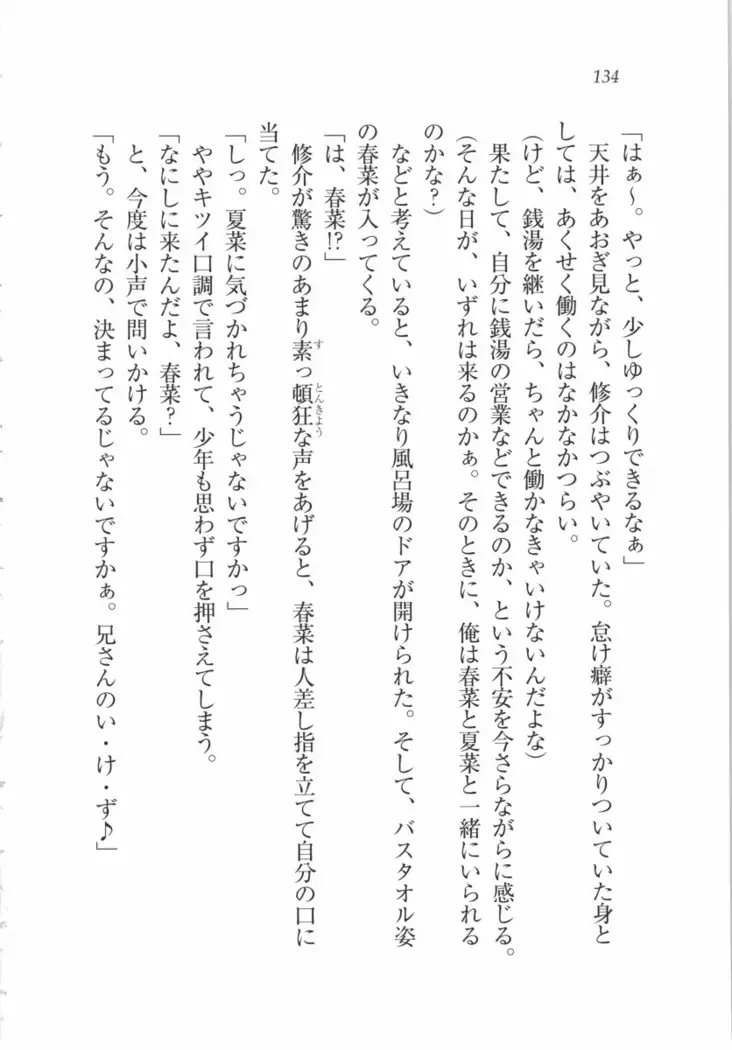 134
「はぁ～。やっと、少しゆっくりできるなぁ」
天井をあおぎ見ながら、修介はつぶやいていた。怠け癖がすっかりついていた身と
しては、あくせく働くのはなかなかつらい。
(けど、銭湯を継いだら、ちゃんと働かなきゃいけないんだよな)
果たして、自分に銭湯の営業などできるのか、という不安を今さらながらに感じる。
(そんな日が、いずれは来るのかぁ。そのときに、俺は春菜と夏菜と一緒にいられる
のかな？)
などと考えていると、いきなり風呂場のドアが開けられた。そして、バスタオル姿
の春菜が入ってくる。
「は、春菜!?」
修介が驚きのあまり素っ頓狂な声をあげると、春菜は人差し指を立てて自分の口に
当てた。
「しっ。夏菜に気づかれちゃうじゃないですかっ」
ややキツイ口調で言われて、少年も思わず口を押さえてしまう。
「なにしに来たんだよ、春菜？」
と、今度は小声で問いかける。
「もう。そんなの、決まってるじゃないですかぁ。兄さんのい・け・ず♪」